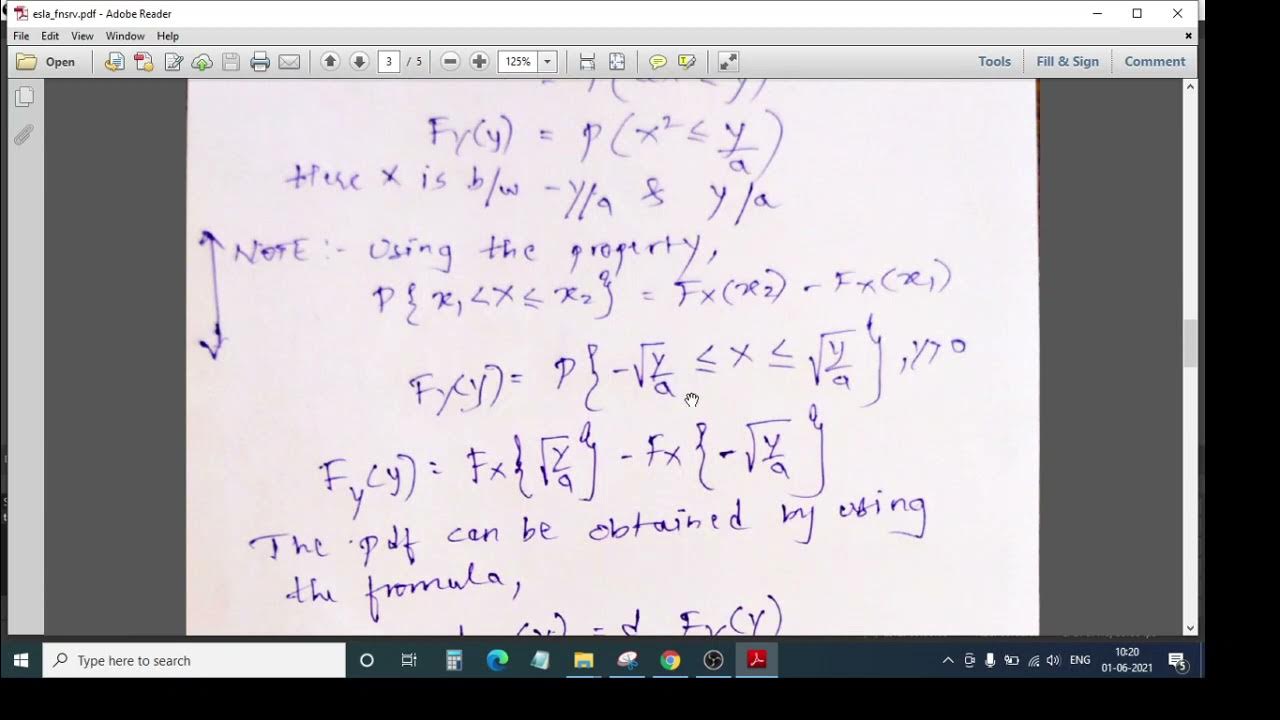 esla_fnsrv.pdf - Adobe Reader
File Edit View Window Help
Open 3 / 5 125% Tools Fill & Sign Comment
Fy(y) = P(x² ≤ y/a)
Here x is b/w -y/a & y/a
NOTE :- Using the property,
P{x₁ < X ≤ x₂} = Fx(x₂) - Fx(x₁)
Fy(y) = P{-√y/a ≤ x ≤ √y/a}, y>0
Fy(y) = Fx{√y/a} - Fx{-√y/a}
The pdf can be obtained by using
the fromula,
(y) = d Fy(y)
Type here to search
ENG
10:20
01-06-2021
5